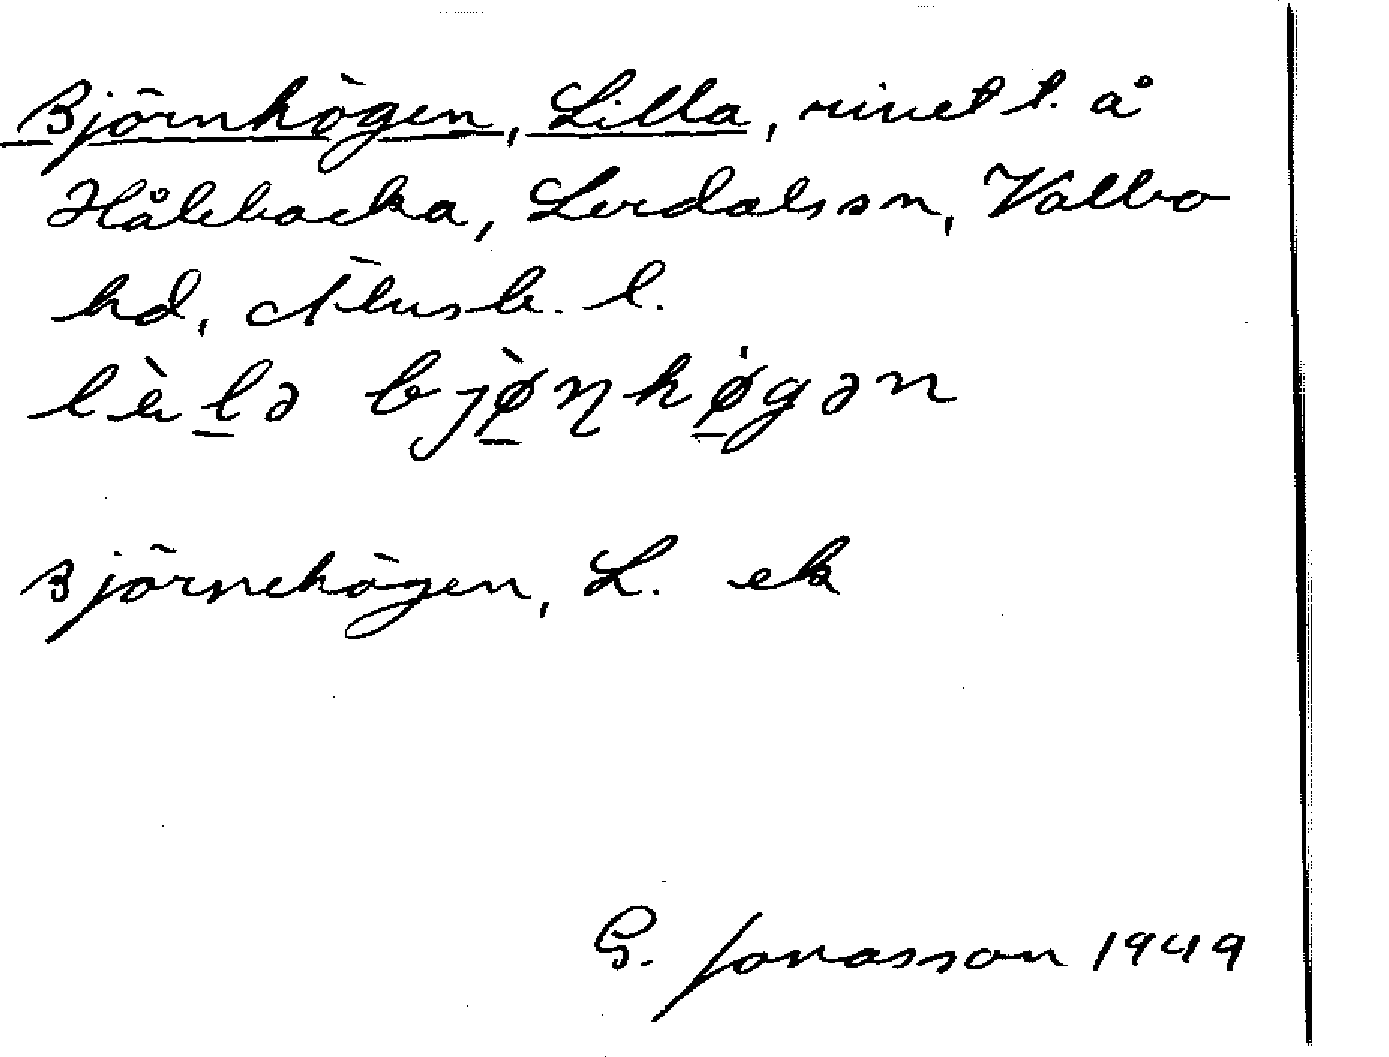 Björnhögen, Lilla, rivet t. å
Hålebacka, Lerdalssn, Valbo
hd, Älvsb. l.
lèlə bjø̀ɳhøgən
Björnehögen, L. ek
G. Jonasson 1949